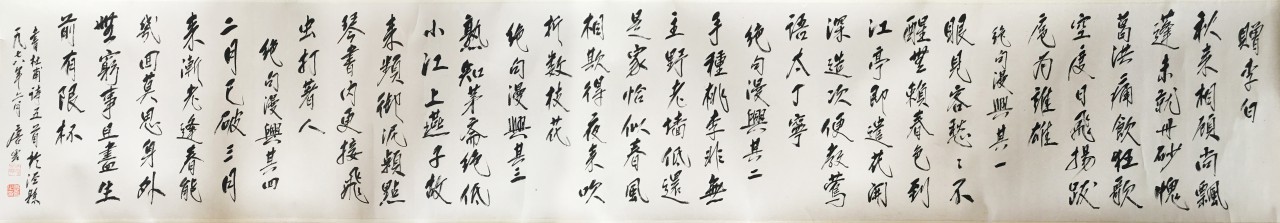 赠李白
秋来相顾尚飘
蓬未就丹砂愧
葛洪痛饮狂歌
空度日飞扬跋
扈为谁雄
绝句漫興其一
眼见客愁愁不
醒無赖春色到
江亭即遣花開
深造次便教鶯
語太丁寧
绝句漫興其二
手種桃李非無
主野老墙低還
是家恰似春風
相欺得夜来吹
折数枝花
绝句漫興其三
熟知茅斋绝低
小江上燕子故
来頻衔泥點
琴書内更接飛
虫打著人
绝句漫興其四
二月已破三月
来漸老逢春能
幾回莫思身外
無窮事且盡生
前有限杯
杜甫詩五首於
一九九六年